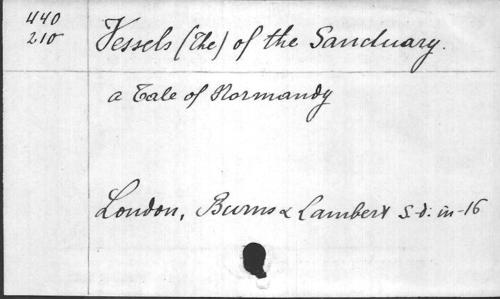 440
210
Vessels (The) of the Sanctuary.
a Tale of Normandy
London, Burns & Lambert S. d: in-16